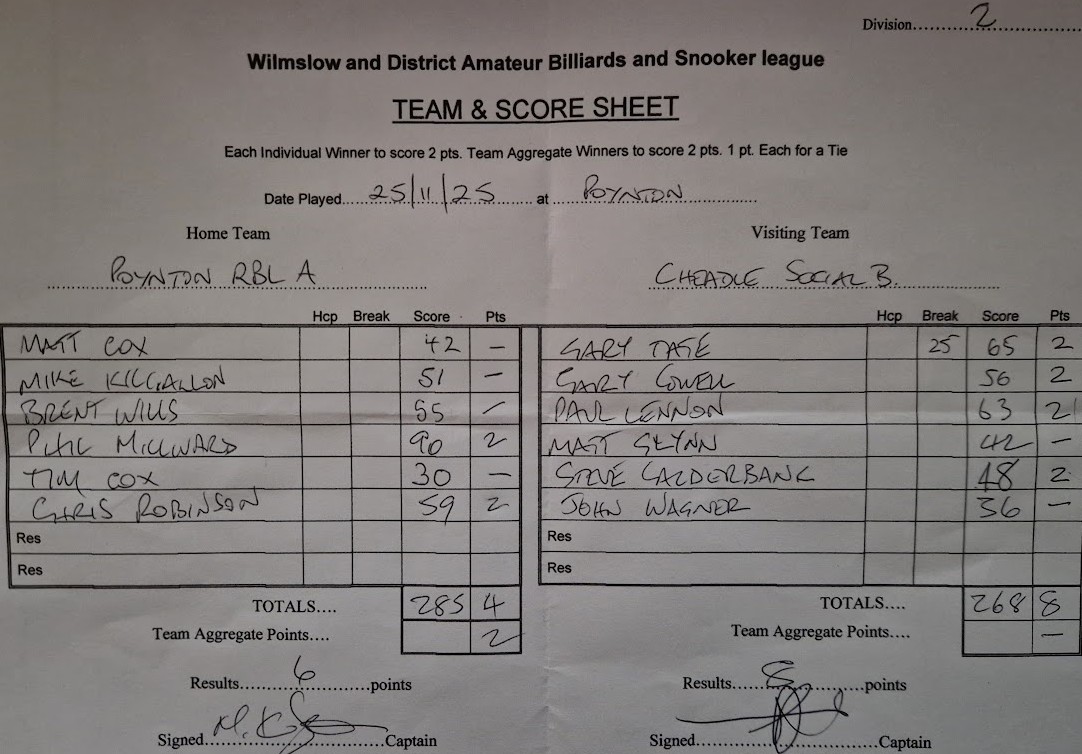 Division 2
Wilmslow and District Amateur Billiards and Snooker league
TEAM & SCORE SHEET
Each Individual Winner to score 2 pts. Team Aggregate Winners to score 2 pts. 1 pt. Each for a Tie
Date Played 25/11/25 at POYNTON
Home Team Visiting Team
POYNTON RBL A CHEADLE SOCIAL B.
Hcp Break Score Pts Hcp Break Score Pts
MATT COX 42 – GARY 25 65 2
MIKE KILGALLON 51 – GARY COWELL 56 2
BRENT WILLS 55 – PAUL LENNON 63 2
PHIL MILLWARD 90 2 MATT GLYNN 42 –
TIM COX 30 – STEVE CALDERBANK 48 2
CHRIS ROBINSON 59 2 JOHN WAGNER 36 –
Res Res
Res Res
TOTALS.... 285 4 TOTALS.... 268 8
Team Aggregate Points.... 2 Team Aggregate Points.... –
Results 6 points Results 8 points
Signed Captain Signed Captain